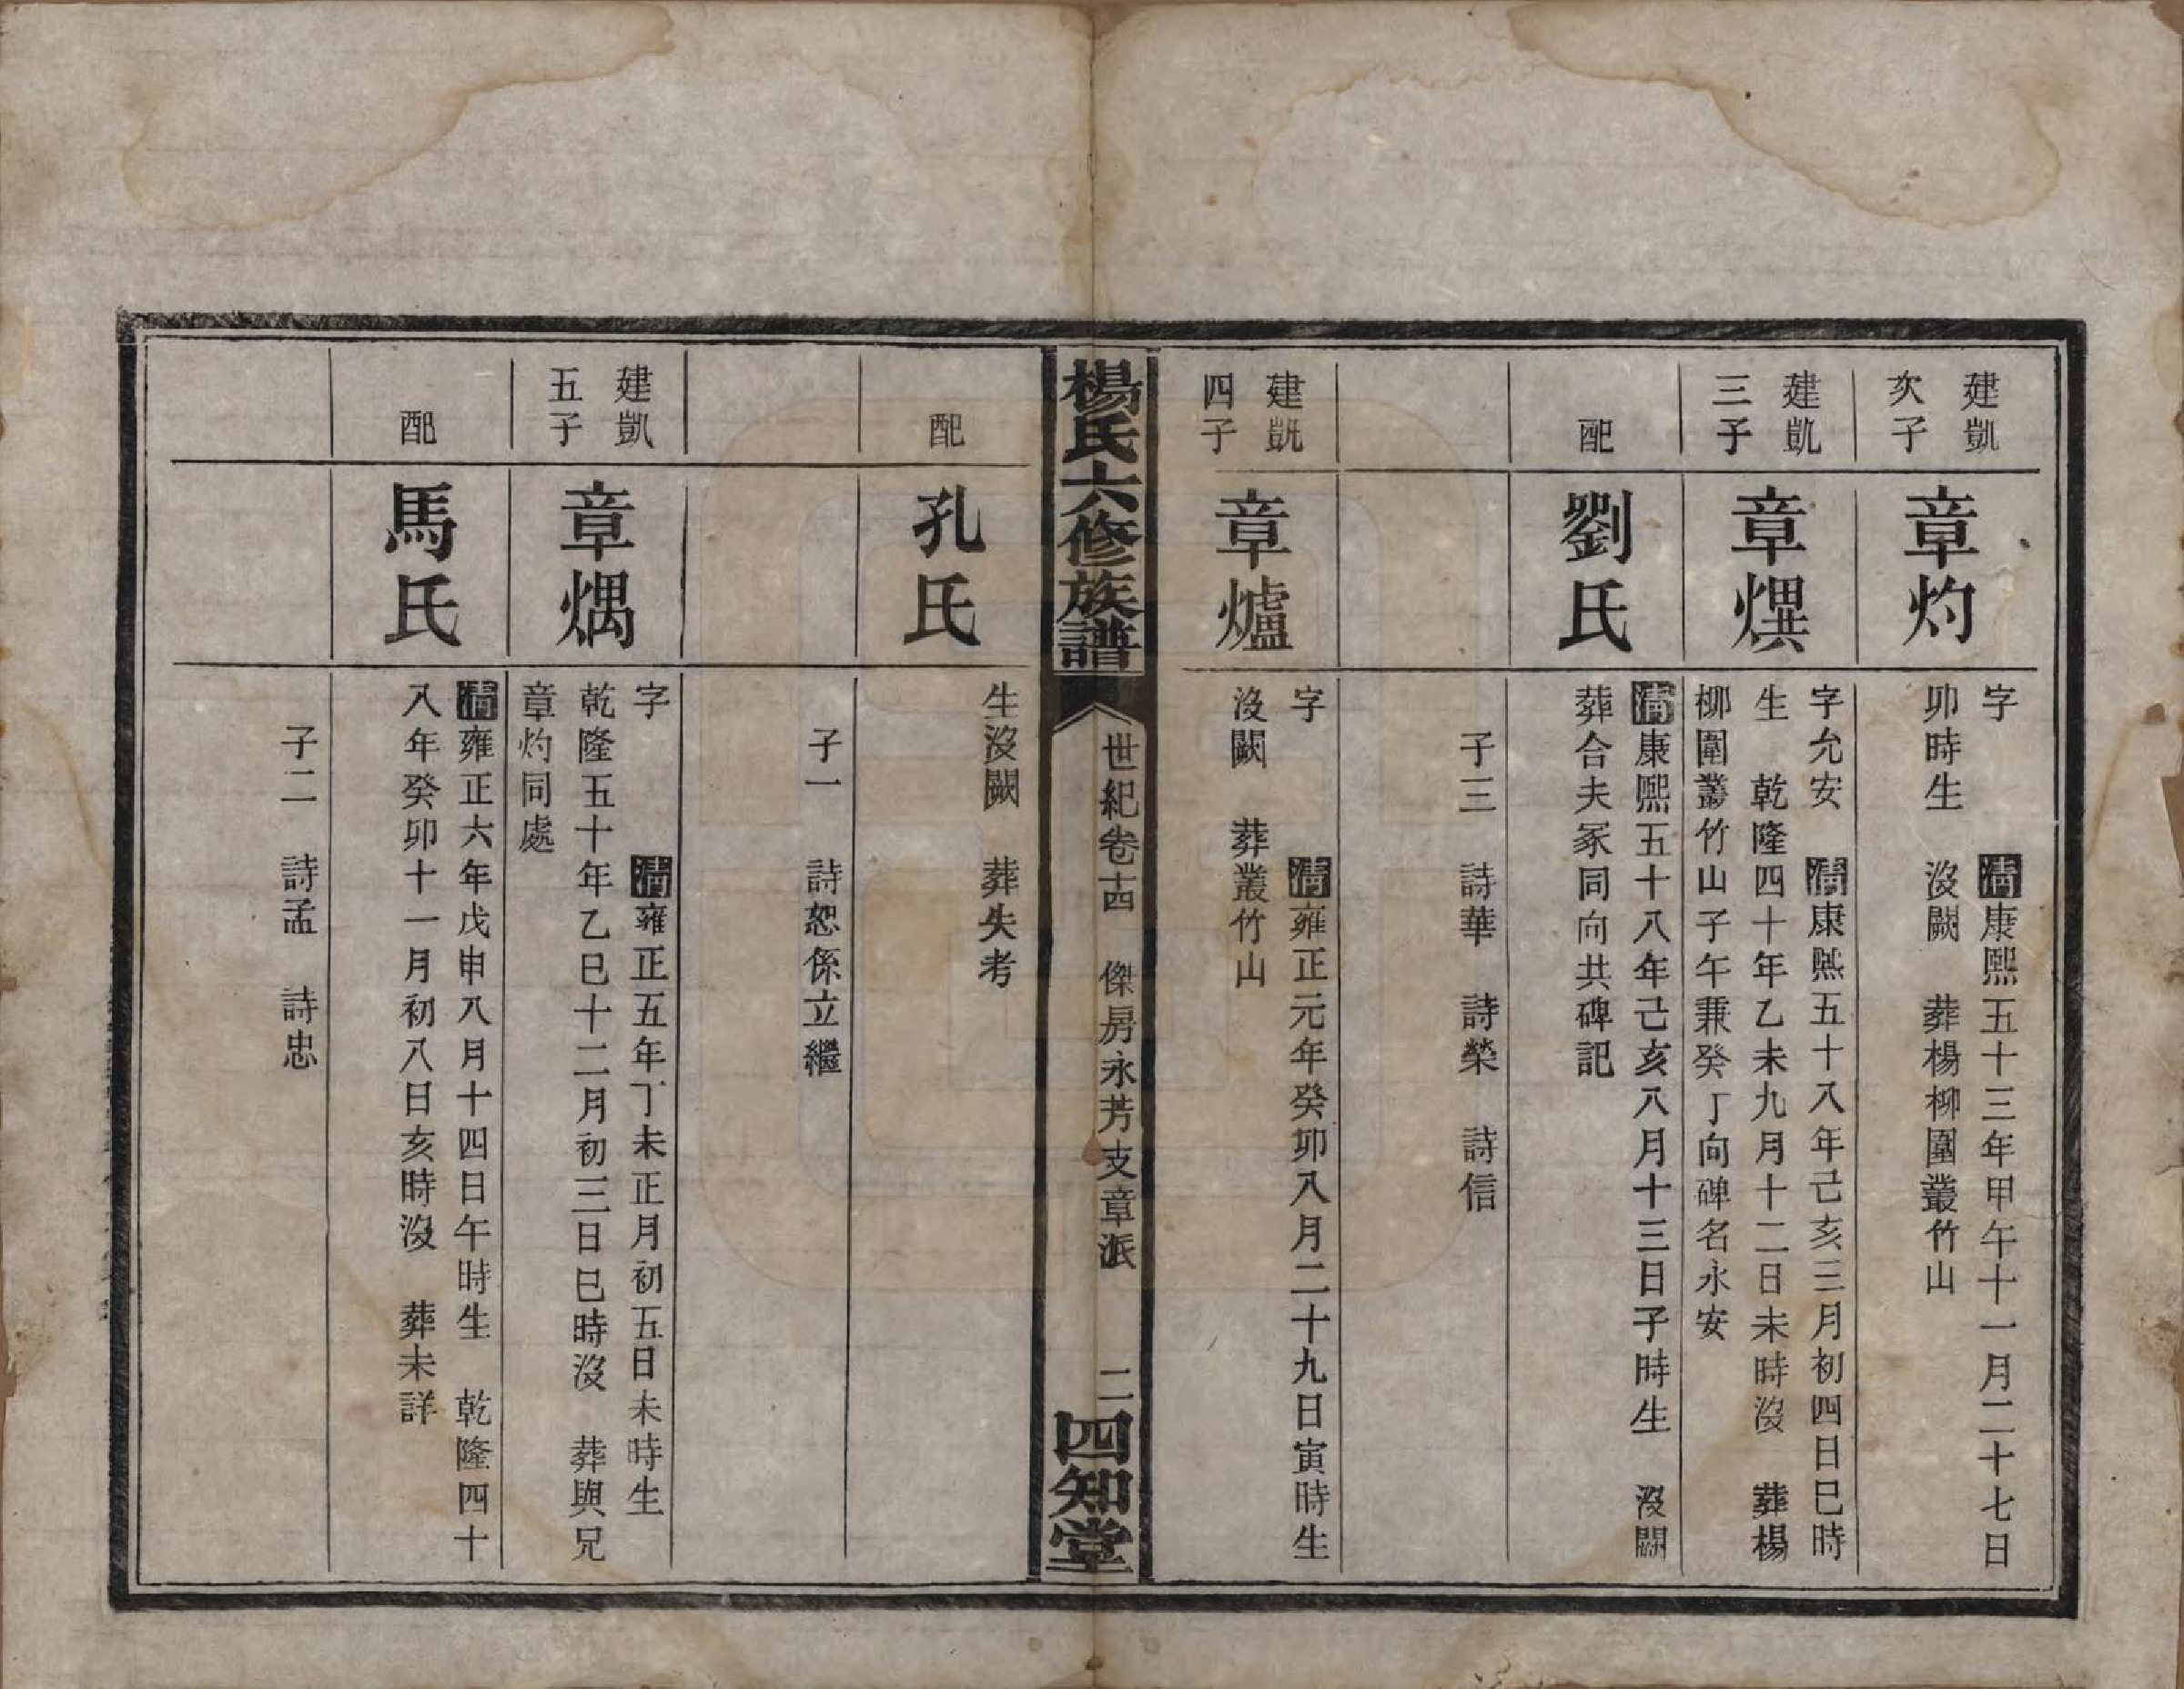 建凱
次子
章灼
字　　　清康熙五十三年甲午十一月二十七日
卯時生　沒闕　葬楊柳圍叢竹山
建凱
三子
章熼
字允安　清康熙五十八年己亥三月初四日巳時
生　乾隆四十年乙未九月十二日未時沒　葬楊
柳圍叢竹山子午兼癸丁向碑名永安
配
劉氏
清康熙五十八年己亥八月十三日子時生　沒闕
葬合夫冢同向共碑記
子三　詩華　詩榮　詩信
建凱
四子
章爐
字　　　清雍正元年癸卯八月二十九日寅時生
沒闕　葬叢竹山
楊氏六修族譜
世紀卷十四　傑房永芳支章派　　二
四知堂
配
孔氏
生沒闕　葬失考
子一　詩恕係立繼
建凱
五子
章㷒
字　　　清雍正五年丁未正月初五日未時生
乾隆五十年乙巳十二月初三日巳時沒　葬與兄
章灼同處
配
馬氏
清雍正六年戊申八月十四日午時生　乾隆四十
八年癸卯十一月初八日亥時沒　葬未詳
子二　詩孟　詩忠